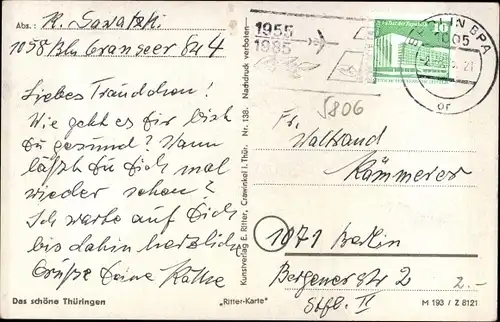 Abs.: K. Sawatzki
1058 Bln Granseer Str 4
Liebes Traudchen!
Wie geht es Dir bist
Du gesund? Wann
läßt Du Dich mal
wieder sehen?
Ich warte auf Dich
bis dahin herzliche
Grüße Deine Käthe
Das schöne Thüringen
„Ritter-Karte"
Kunstverlag E. Ritter, Crawinkel i. Thür. Nr. 138. Nachdruck verboten
1955
1985
BERLIN BPA
1085
5806
Fr.
Waltraud
Kämmerer
1071 Berlin
Bergener Str 2
Stfl. II
2.-
M 193 / Z 8121